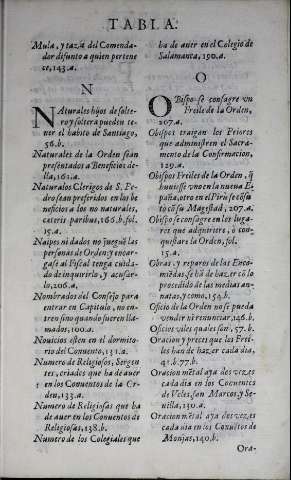 TABLA.
Mula, y taza del Comenda-
dor difunto a quien pertene
ce, 143.a.
N
NAturales hijos de solte-
ro y soltera pueden te-
ner el habito de Santiago,
56.b.
Naturales de la Orden sean
presentados a Beneficios de-
lla, 161.a.
Naturales Clerigos de S. Pe-
dro sean preferidos en los be
neficios a los no naturales,
cæteris paribus, 166.b. fol.
15.a.
Naipes ni dados no jueguē las
personas de Orden: y encar-
gase al Fiscal tenga cuida-
do de inquirirlo, y acusar-
lo, 206.a.
Nombrados del Consejo para
entrar en Capitulo, no en-
tren sino quando fueren lla-
mados, 100.a.
Nouicios estèn en el dormito-
rio del Conuento, 131.a.
Numero de Religiosos, Sergen
tes, criados que ha de auer
en los Conuentos de la Or-
den, 133.a.
Numero de Religiosas que ha
de auer en los Conuentos de
Religiosas, 138.b.
Numero de los Colegiales que
ha de auer en el Colegio de
Salamanca, 190.a.
O
OBispo se consagre vn
Freile de la Orden,
207.a.
Obispos traigan los Priores
que administren el Sacra-
mento de la Confirmacion,
129.a.
Obispos Freiles de la Orden, q̃
huuiesse vno en la nueua Es
paña, otro en el Pirù se cōsul
tò cō su Magestad, 207.a.
Obispo se consagre en los luga-
res que adquiriere, ò con-
quistare la Orden, fol.
15.a.
Obras, y reparos de las Enco-
miēdas, se hā de hazer cō lo
procedido de las medias an-
natas, y como, 154.b.
Oficio de la Orden no se pueda
vender ni renunciar, 146.b.
Oficios viles quales son, 57.b.
Oracion y preces que los Frei-
les han de hazer cada dia,
41.b. 77.b.
Oracion mētal aya dos vezes
cada dia en los Conuentos
de Vcles, san Marcos, y Se-
uilla, 130.a.
Oracion mētal aya dos vezes
cada dia en los Conuētos de
Monjas, 140.b.
Ora-